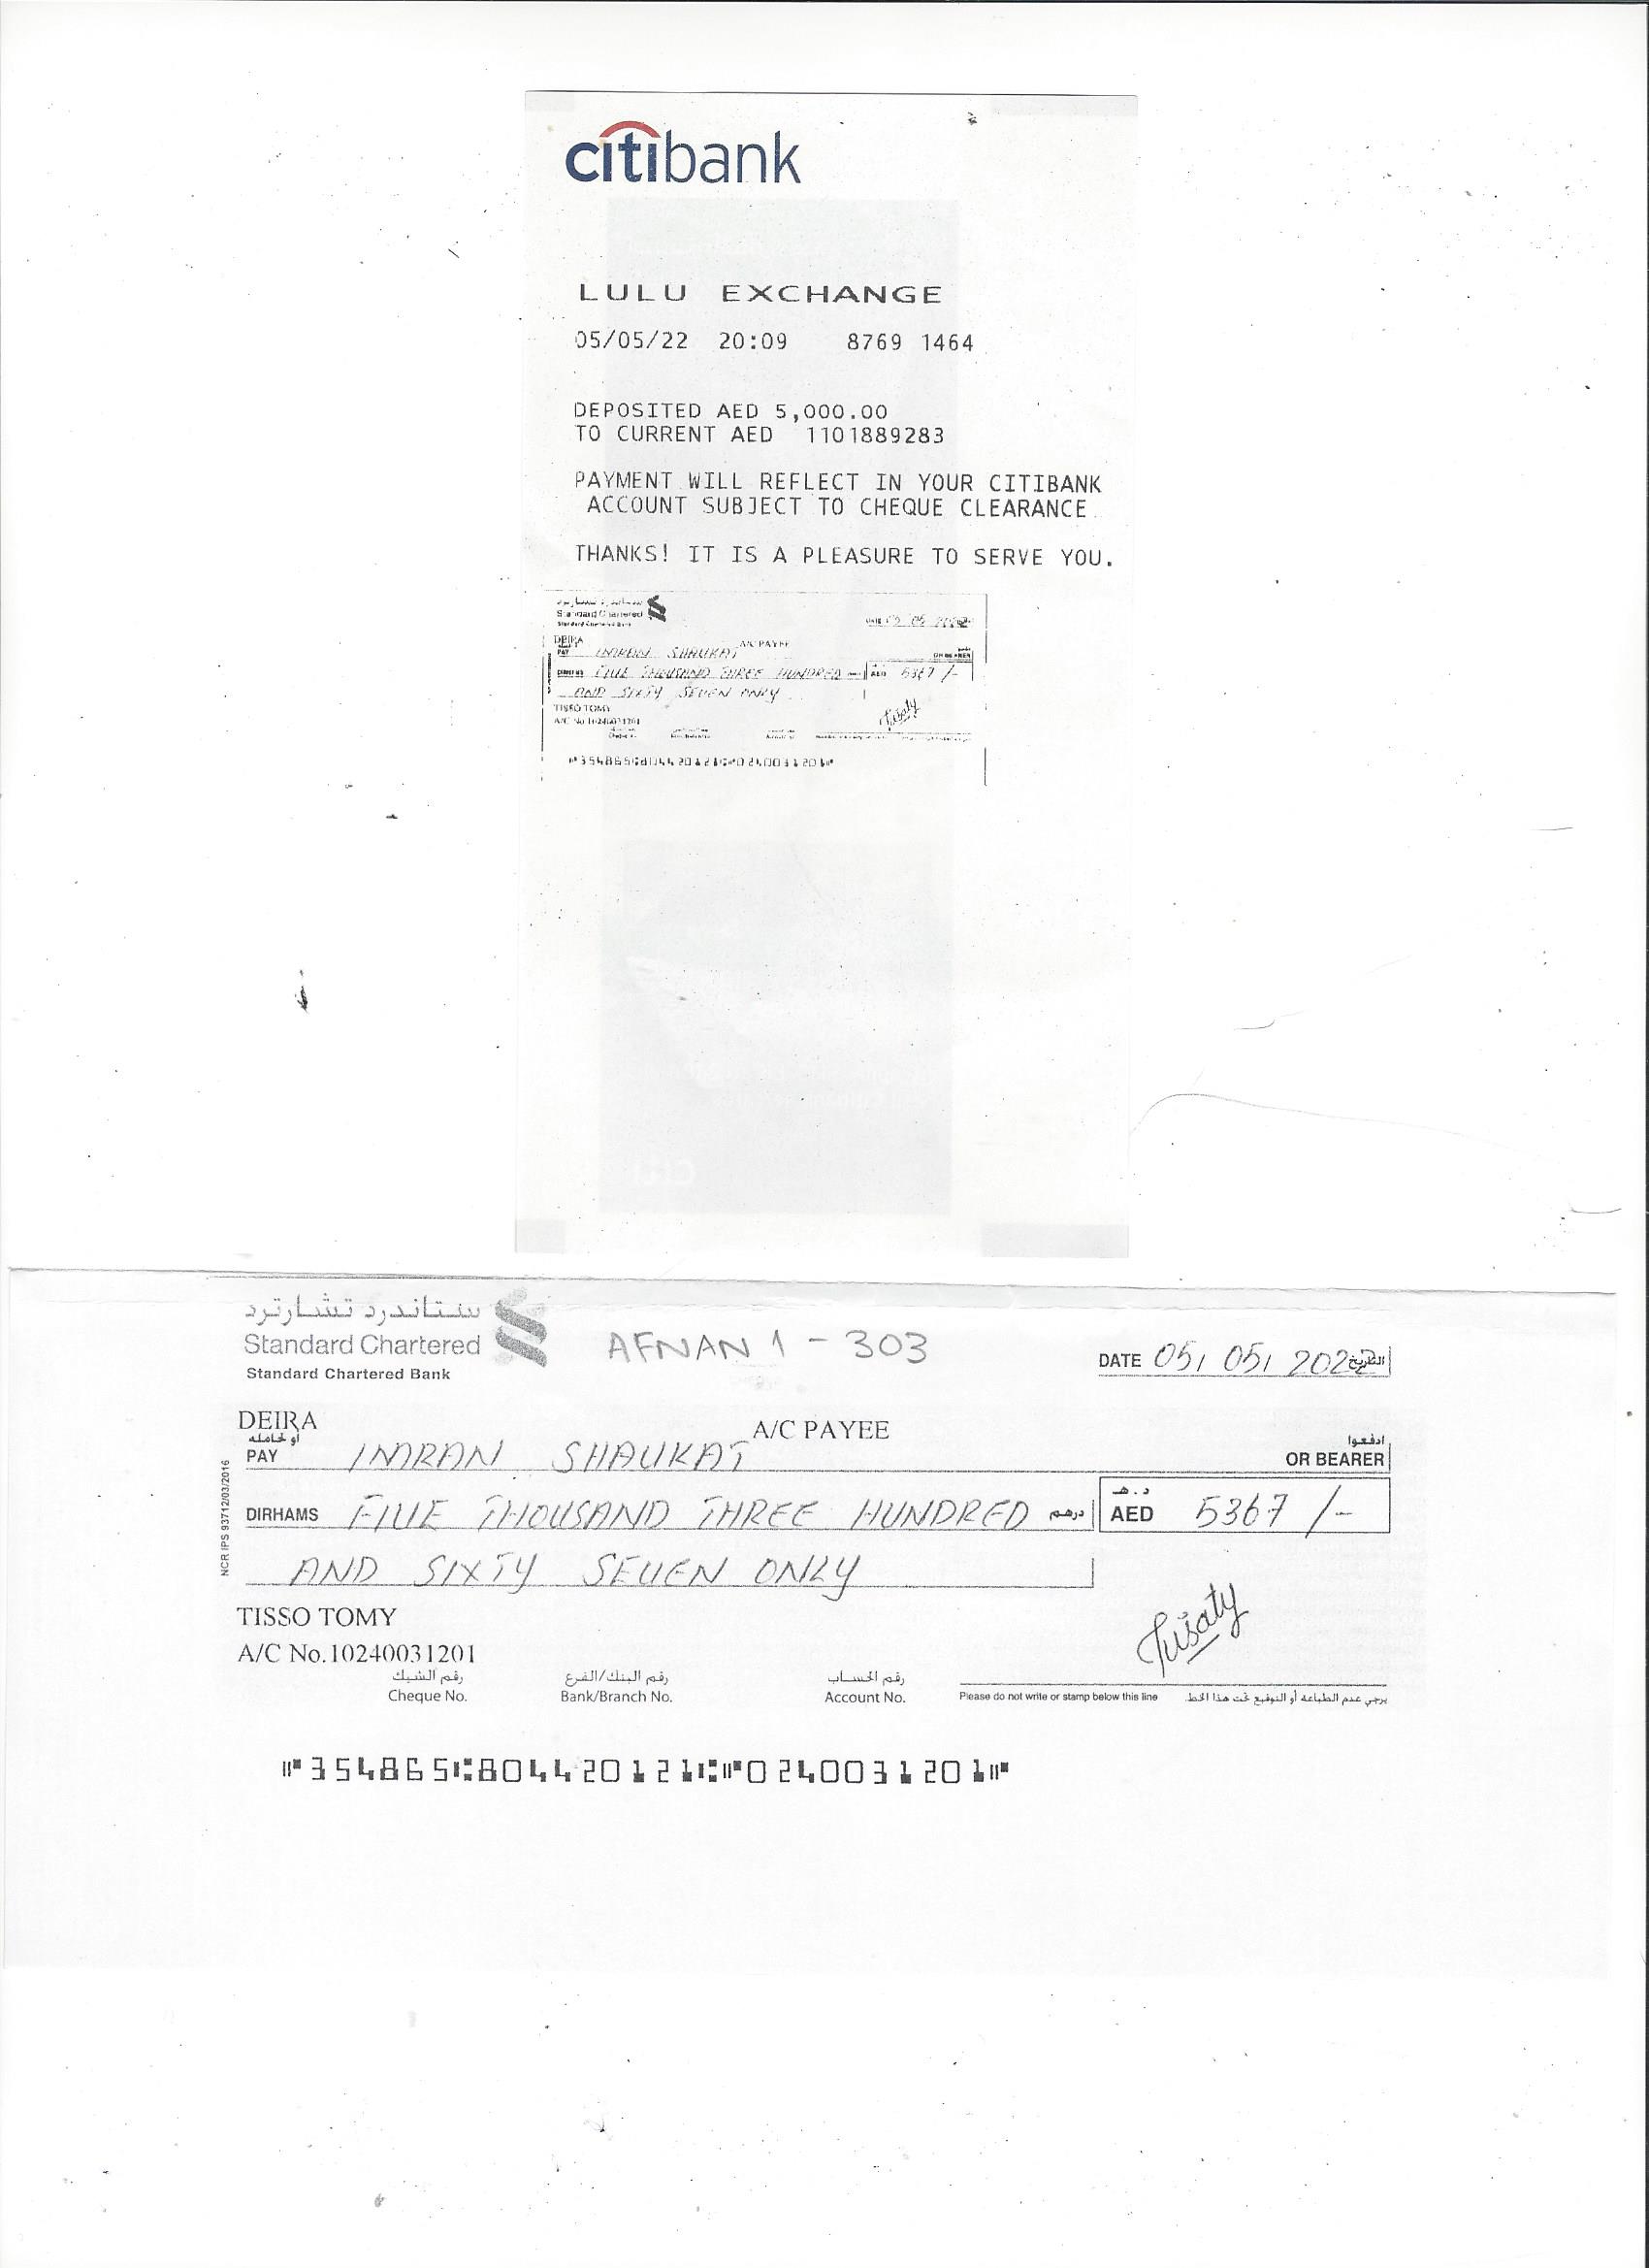 citibank
LULU EXCHANGE
05/05/22 20:09 8769 1464
DEPOSITED AED 5,000.00
TO CURRENT AED 1101889283
PAYMENT WILL REFLECT IN YOUR CITIBANK
ACCOUNT SUBJECT TO CHEQUE CLEARANCE
THANKS! IT IS A PLEASURE TO SERVE YOU.
ستاندرد تشارترد
Standard Chartered
Standard Chartered Bank
DATE 05 05 2022
DEIRA
A/C PAYEE
PAY IMRAN SHAUKAT
OR BEARER
DIRHAMS FIVE THOUSAND THREE HUNDRED AED 5367 /-
AND SIXTY SEVEN ONLY
TISSO TOMY
A/C No.10240031201
⑈354865⑆804420121⑆⑈0240031201⑈
ستاندرد تشارترد
Standard Chartered
Standard Chartered Bank
AFNAN 1 - 303
DATE 05, 05, 2022 التاريخ
DEIRA
A/C PAYEE
أو لحامله
ادفعوا
PAY IMRAN SHAUKAT
OR BEARER
DIRHAMS FIVE THOUSAND THREE HUNDRED درهم
د.هـ
AED 5367 /-
AND SIXTY SEVEN ONLY
NCR IPS 93712/03/2016
TISSO TOMY
A/C No.10240031201
رقم الشيك رقم البنك/الفرع رقم الحساب
Cheque No. Bank/Branch No. Account No.
Please do not write or stamp below this line يرجي عدم الطباعه أو التوقيع تحت هذا الخط
⑈354865⑆804420121⑆⑈0240031201⑈